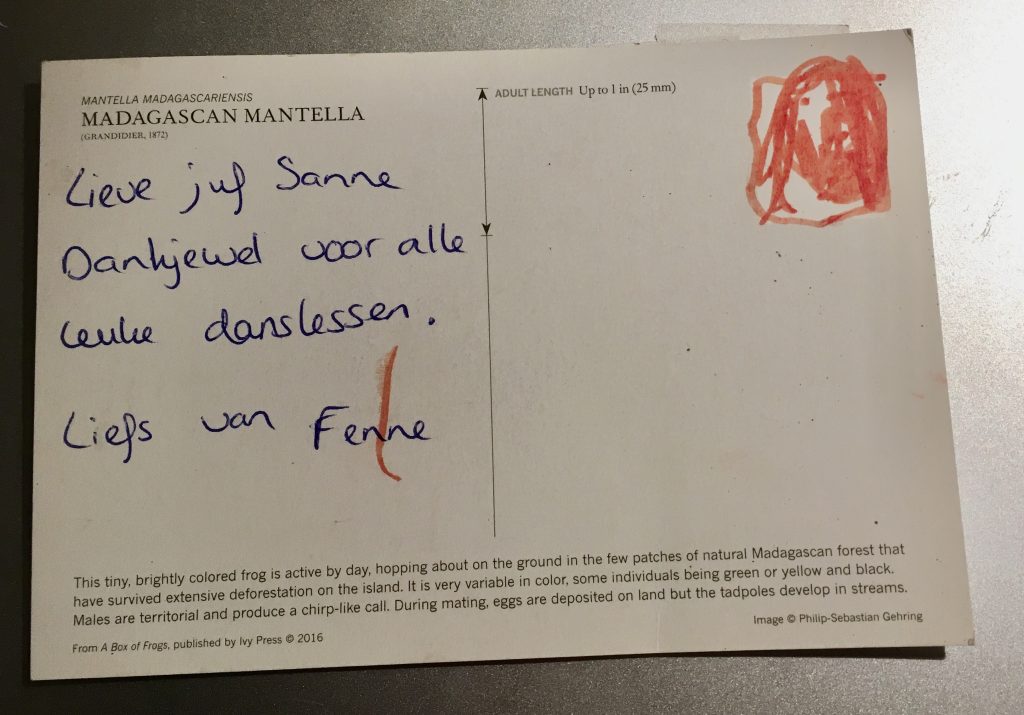 MANTELLA MADAGASCARIENSIS
MADAGASCAN MANTELLA
(GRANDIDIER, 1872)
ADULT LENGTH Up to 1 in (25 mm)
Lieve juf Sanne
Dankjewel voor alle
leuke danslessen.
Liefs van Fenne
This tiny, brightly colored frog is active by day, hopping about on the ground in the few patches of natural Madagascan forest that
have survived extensive deforestation on the island. It is very variable in color, some individuals being green or yellow and black.
Males are territorial and produce a chirp-like call. During mating, eggs are deposited on land but the tadpoles develop in streams.
From A Box of Frogs, published by Ivy Press © 2016
Image © Philip-Sebastian Gehring